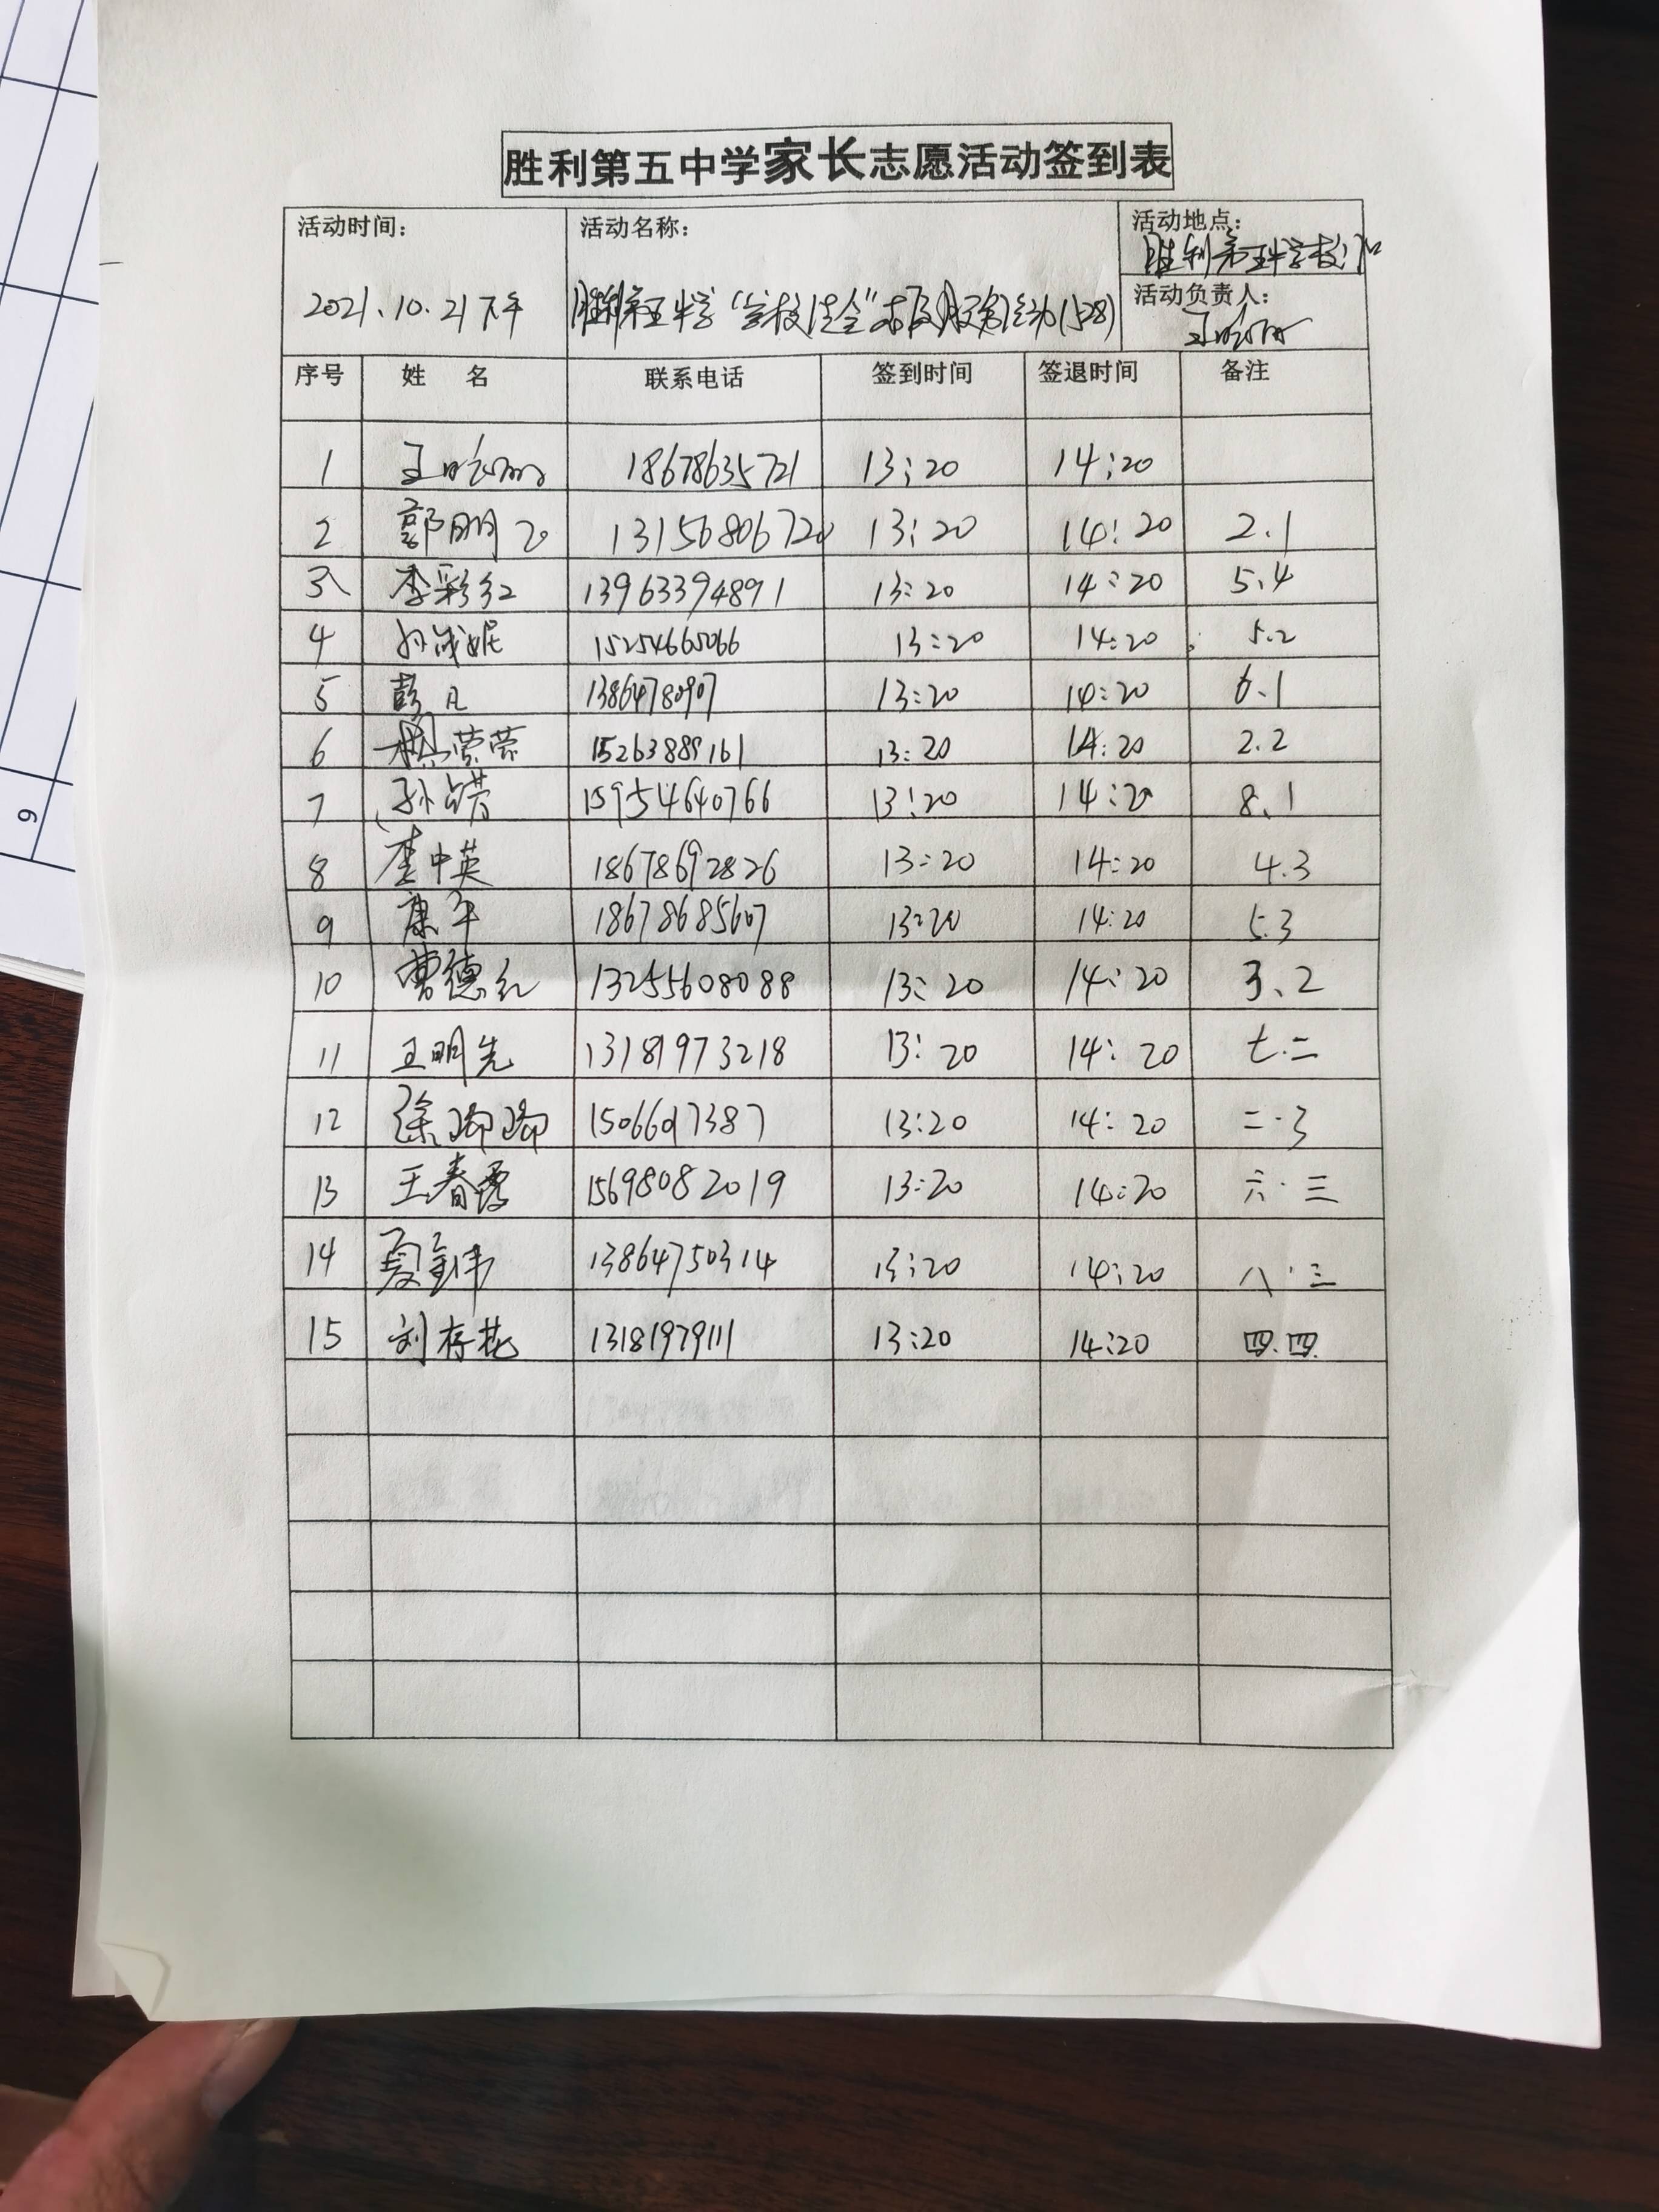 胜利第五中学家长志愿活动签到表
活动时间： 活动名称： 活动地点：
胜利第五中学校门口
2021.10.21下午 胜利第五中学“学校安全”志愿服务活动(528) 活动负责人：
序号 姓 名 联系电话 签到时间 签退时间 备注
1 18678635721 13:20 14:20
2 郭朋飞 13156806720 13:20 14:20 2.1
3 李彩红 13963394891 13:20 14:20 5.4
4 孙成妮 15254665066 13:20 14:20 5.2
5 彭凡 13864780907 13:20 14:20 6.1
6 荣荣 15263889161 13:20 14:20 2.2
7 孙 15954640766 13:20 14:20 8.1
8 李中英 18678692826 13:20 14:20 4.3
9 康年 18678685607 13:20 14:20 5.3
10 曹德红 13255608088 13:20 14:20 3.2
11 王明先 13181973218 13:20 14:20 七.二
12 徐 15066017387 13:20 14:20 二.3
13 王春霞 15698082019 13:20 14:20 六.三
14 夏金伟 13864750314 13:20 14:20 八.三
15 刘存花 13181979111 13:20 14:20 四.四
9